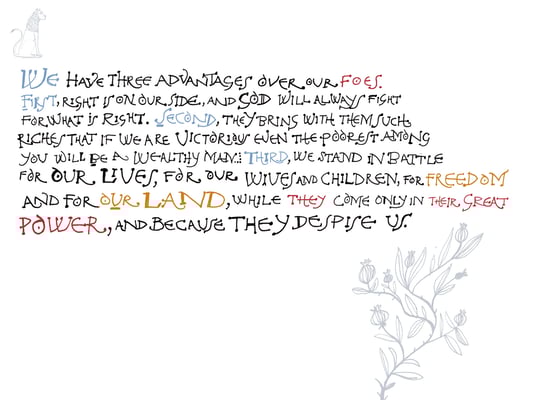 We HAVE THREE ADVANTAGES OVER OUR FOES.
FIRST, RIGHT IS ON OUR SIDE, AND GOD WILL ALWAYS FIGHT
FOR WHAT IS RIGHT. SECOND, THEY BRING WITH THEM SUCH
RICHES THAT IF WE ARE VICTORIOUS EVEN THE POOREST AMONG
YOU WILL BE A WEALTHY MAN. THIRD, WE STAND IN BATTLE
FOR OUR LIVES, FOR OUR WIVES AND CHILDREN, FOR FREEDOM
AND FOR OUR LAND, WHILE THEY COME ONLY IN THEIR GREAT
POWER, AND BECAUSE THEY DESPISE US